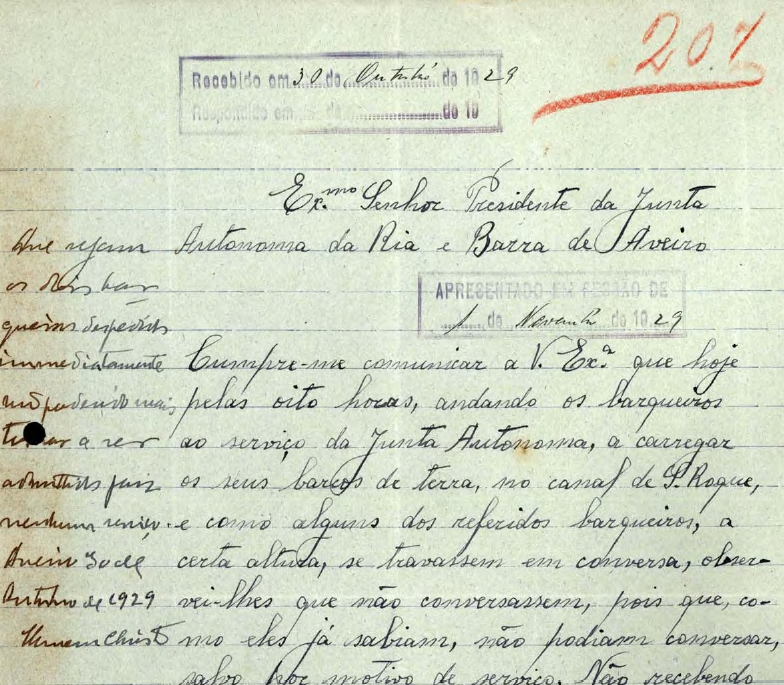 207
Recebido em 30 de Outubº de 1929
Respondido em de de 19
Ex.mo Senhor Presidente da Junta
Autonoma da Ria e Barra de Aveiro
APRESENTADO EM SESSÃO DE
1 de Novembº de 1929
Cumpre-me comunicar a V. Ex.ª que hoje
pelas oito horas, andando os barqueiros
ao serviço da Junta Autonoma, a carregar
os seus barcos de terra, no canal de S. Roque,
e como alguns dos referidos barqueiros, a
certa altura, se travassem em conversa, obser-
vei-lhes que não conversassem, pois que, co-
mo eles já sabiam, não podiam conversar,
salvo por motivo de serviço. Não recebendo
Que sejam
os dois bar-
queiros despedidos
immediatamente
não podendo mais
a ser
admittidos para
nenhum serviço.
Aveiro 30 de
Outubro de 1929
Homem Christo